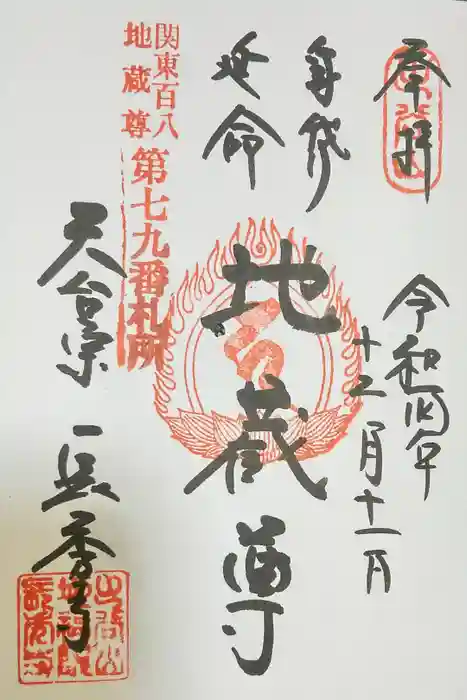 奉拝
令和四年
十二月十一日
身代り
延命
地蔵尊
関東百八
地蔵尊
第七九番札所
天台宗